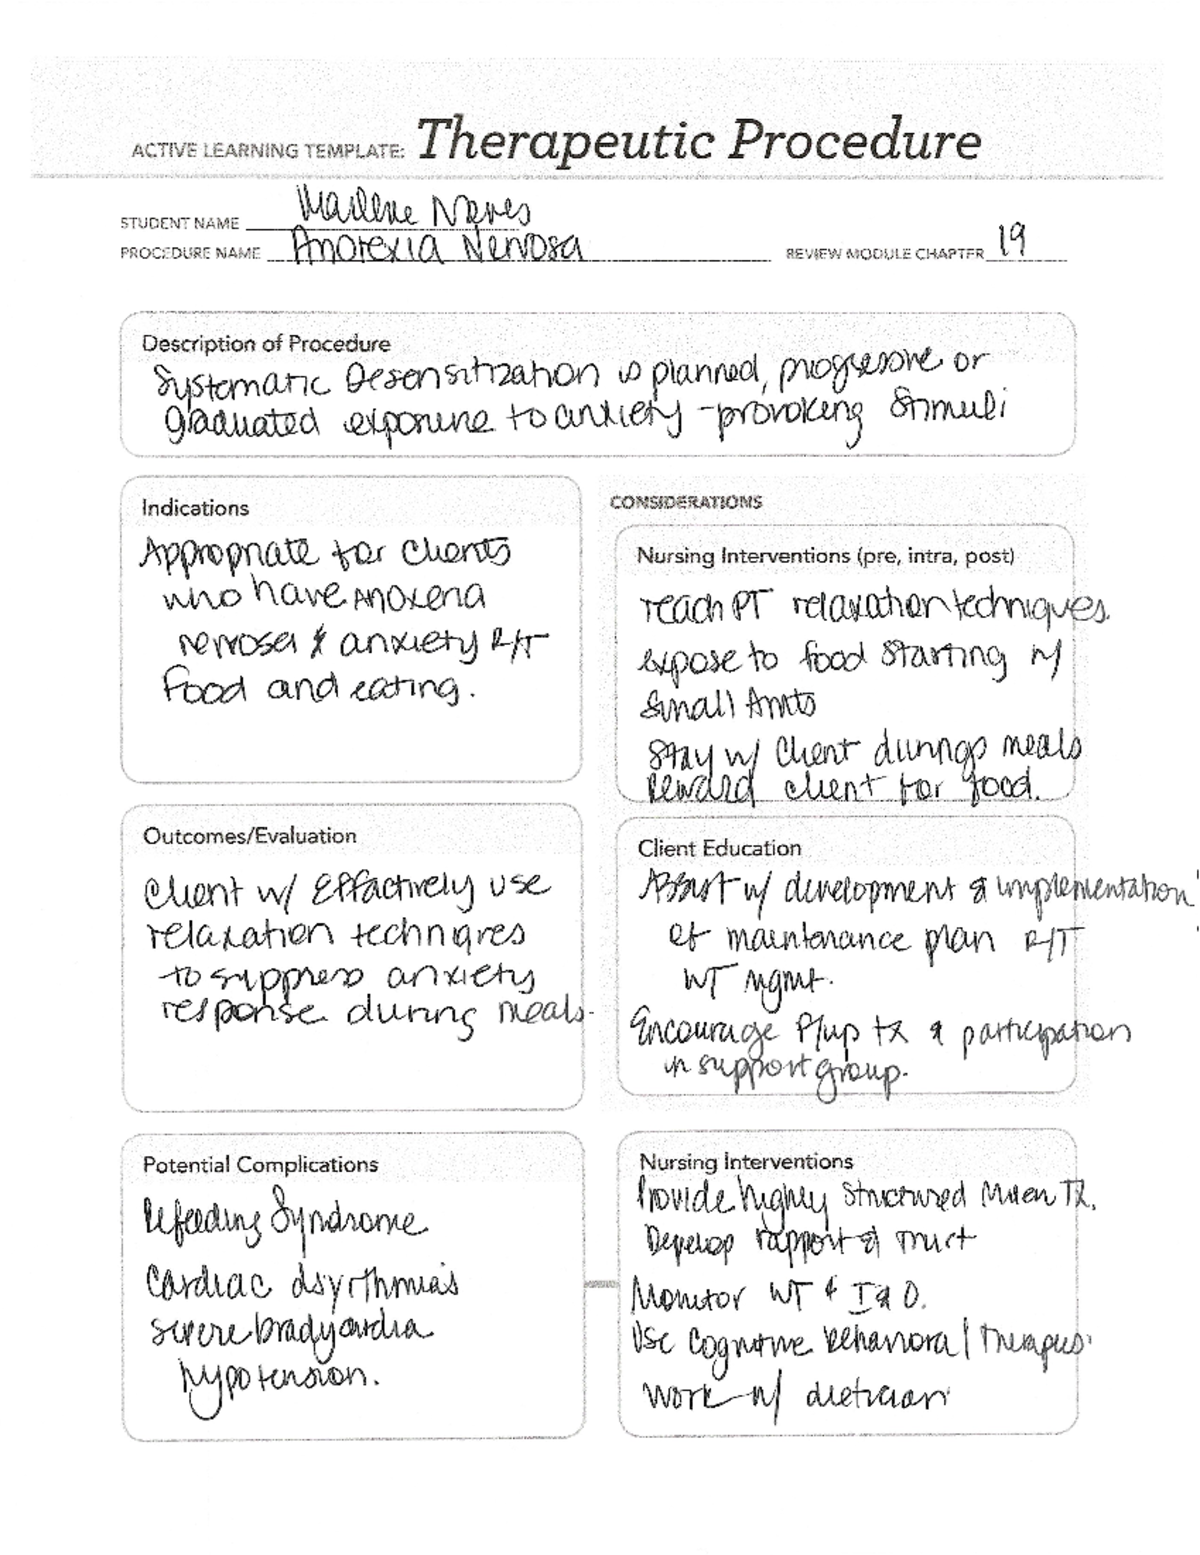 ACTIVE LEARNING TEMPLATE: Therapeutic Procedure
STUDENT NAME Marlene
PROCEDURE NAME Anorexia Nervosa
REVIEW MODULE CHAPTER 19
Description of Procedure
Systematic Desensitization is planned, progressive or
graduated exposure to anxiety-provoking Stimuli
Indications
Appropriate for clients
who have Anorexia
nervosa & anxiety R/T
Food and eating.
CONSIDERATIONS
Nursing Interventions (pre, intra, post)
Teach PT relaxation techniques.
expose to food starting w/
small Amts
Stay w/ client during meals
Reward client for food.
Outcomes/Evaluation
Client w/ Effectively use
relaxation techniques
to suppress anxiety
response during meals.
Client Education
Assist w/ development & implementation
of maintenance plan R/T
WT mgmt.
Encourage F/up tx & participation
in support group.
Potential Complications
Refeeding Syndrome
Cardiac
severe bradycardia
hypotension.
Nursing Interventions
Provide highly structured TX.
Develop rapport & trust
Monitor WT & I & O.
Use cognitive behavioral therapies
work w/ dietician